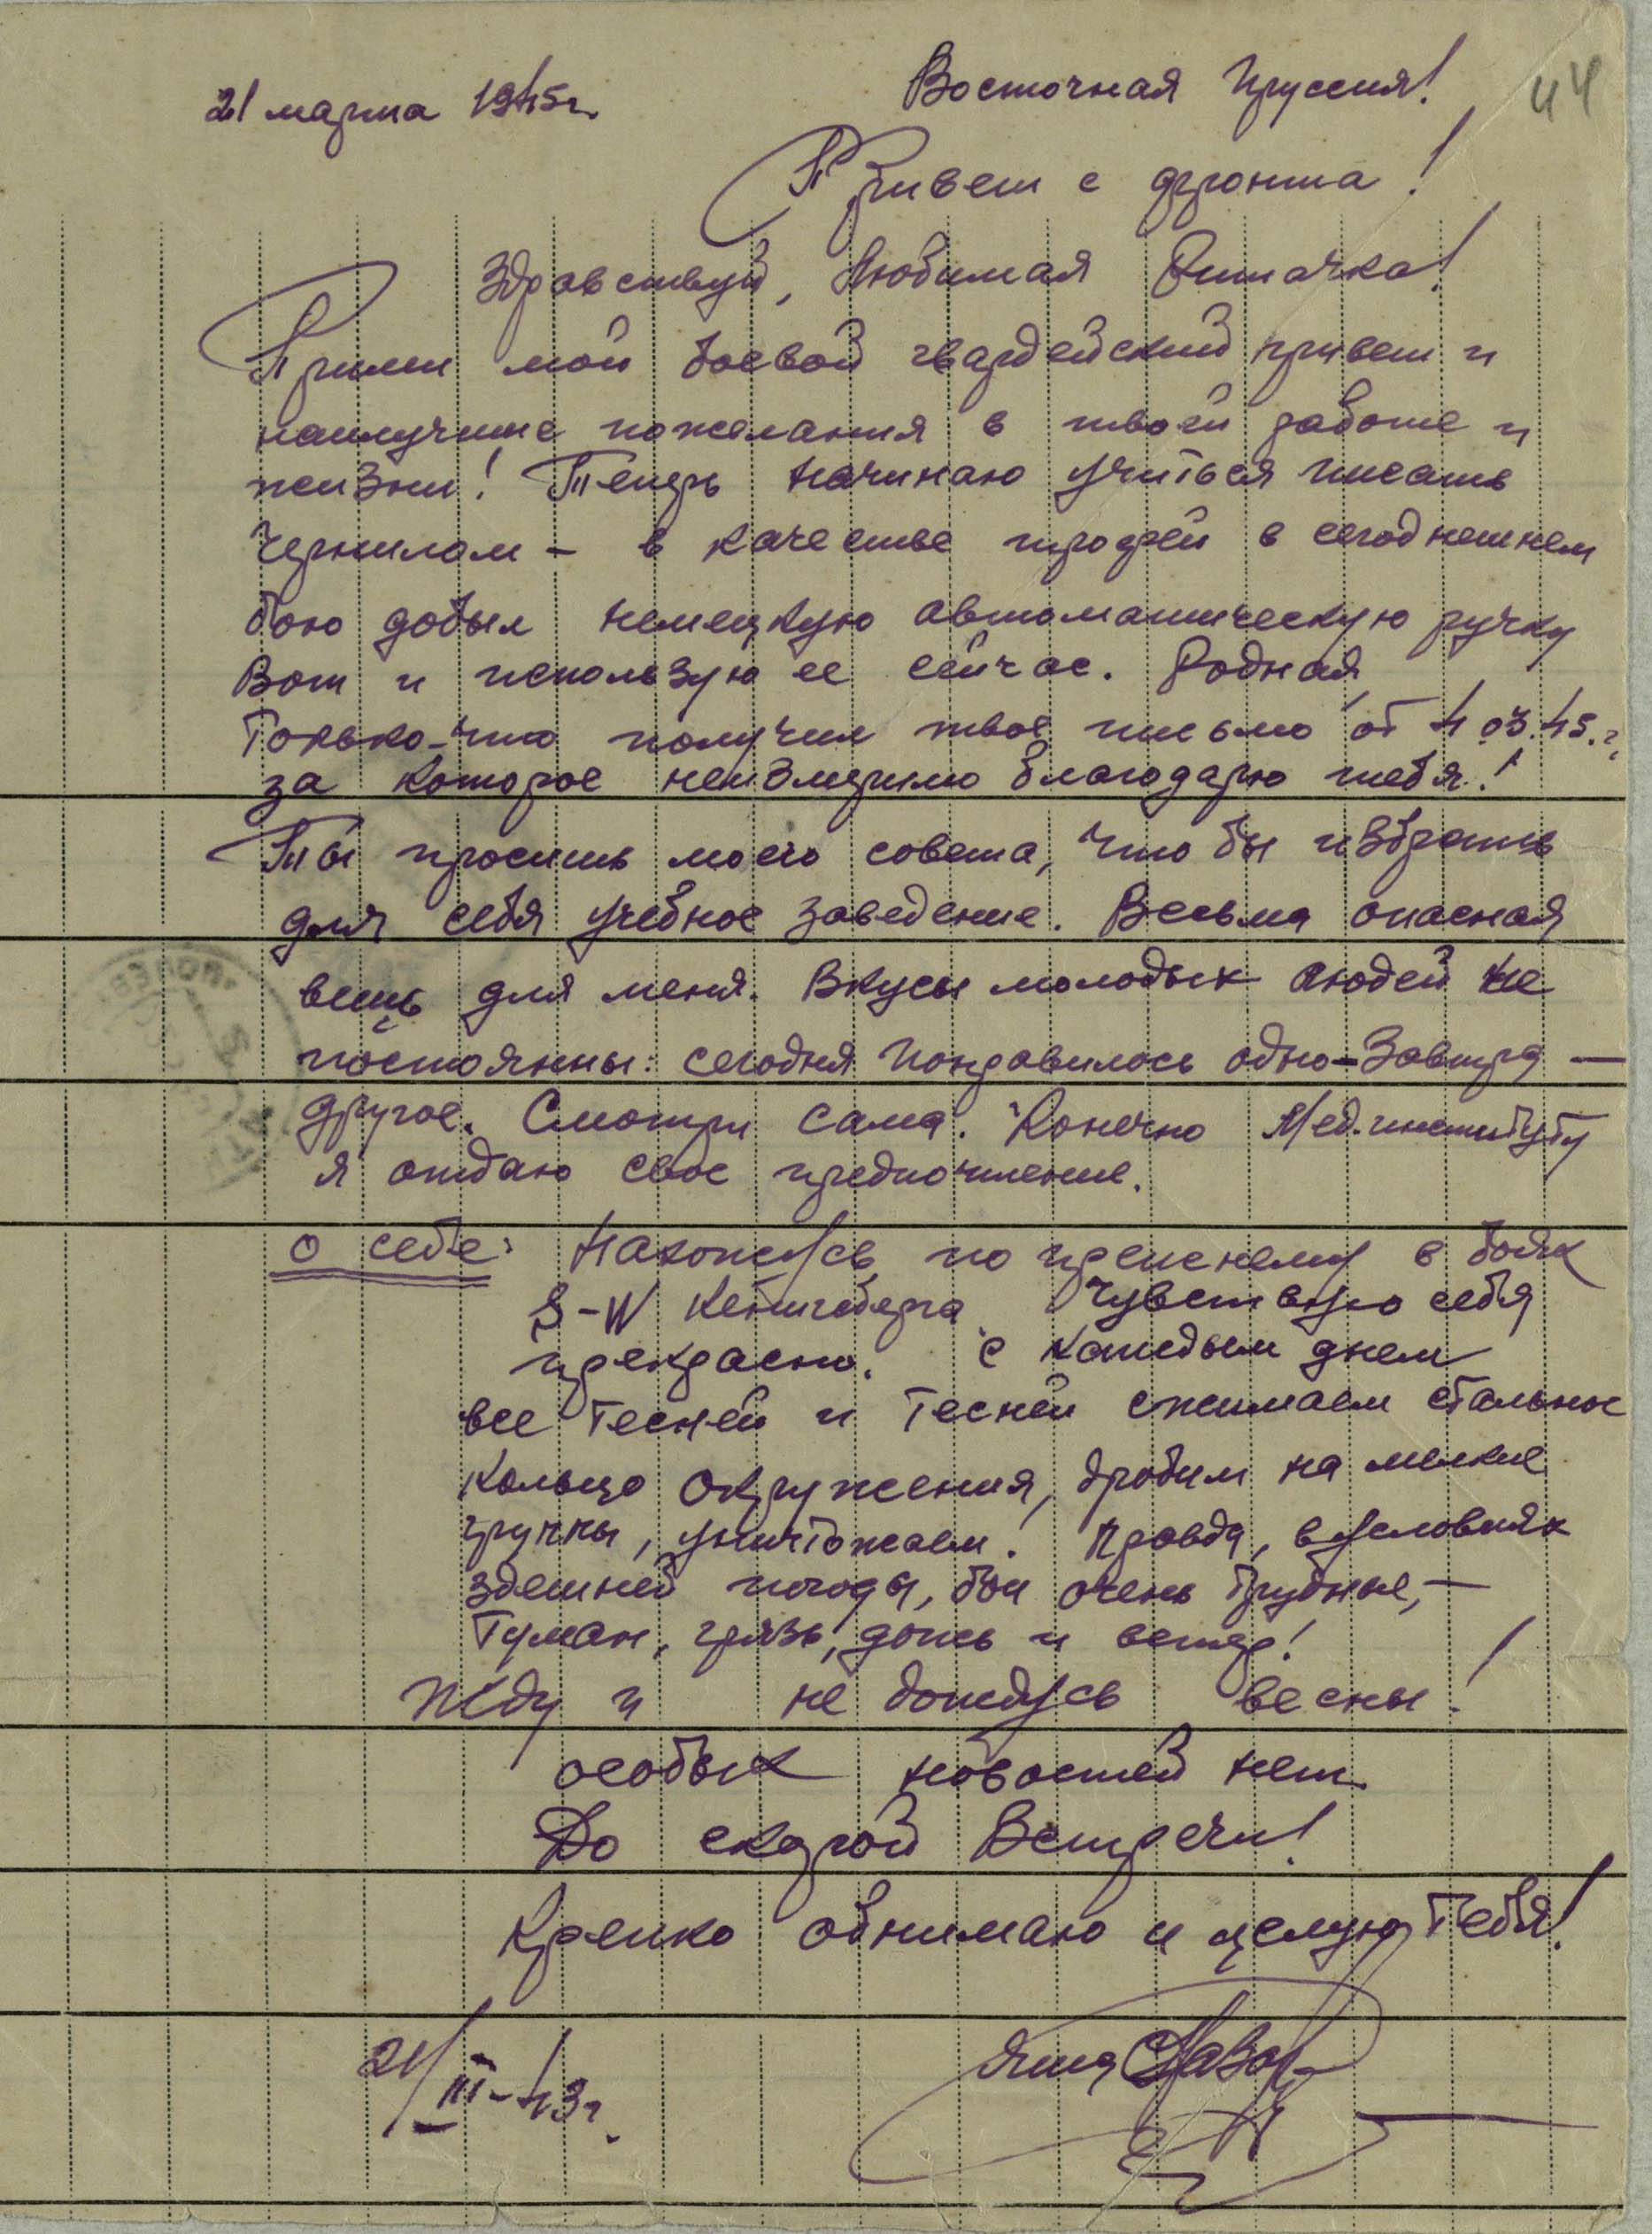 44
21 марта 1945г. Восточная Пруссия!
Привет с фронта!
Здравствуй, Любимая Риточка!
Прими мой боевой гвардейский привет и
наилучшие пожелания в твоей работе и
жизни! Теперь начинаю учиться писать
чернилам – в качестве трофей в сегоднешнем
бою добыл немецкую автоматическую ручку
Вот и использую ее сейчас. Родная
Только-что получил твое письмо от 4.03.45.г.
за которое неизмеримо благодарю тебя!
Ты просишь моего совета, что бы избрать
для себя учебное заведение. Весьма опасная
вещь для меня. Вкусы молодых людей не
постоянны: сегодня понравилось одно – Завтра –
другое. Смотри сама. Конечно Мед.институту
я отдаю свое предпочтение.
о себе: Нахожусь по прежнему в боях
S-W Кенигсберга. Чувствую себя
прекрасно. с каждым днем
все тесней и тесней сжимаем стальное
кольцо окружения, дробим на мелкие
группы, уничтожаем! Правда, в условиях
здешней погоды, бои очень трудные, –
туман, грязь, дождь и ветер!
Жду и не дождусь весны!
особых новостей нет.
До скорой Встречи!
Крепко обнимаю и целую Тебя!
21/III-43г. Яша